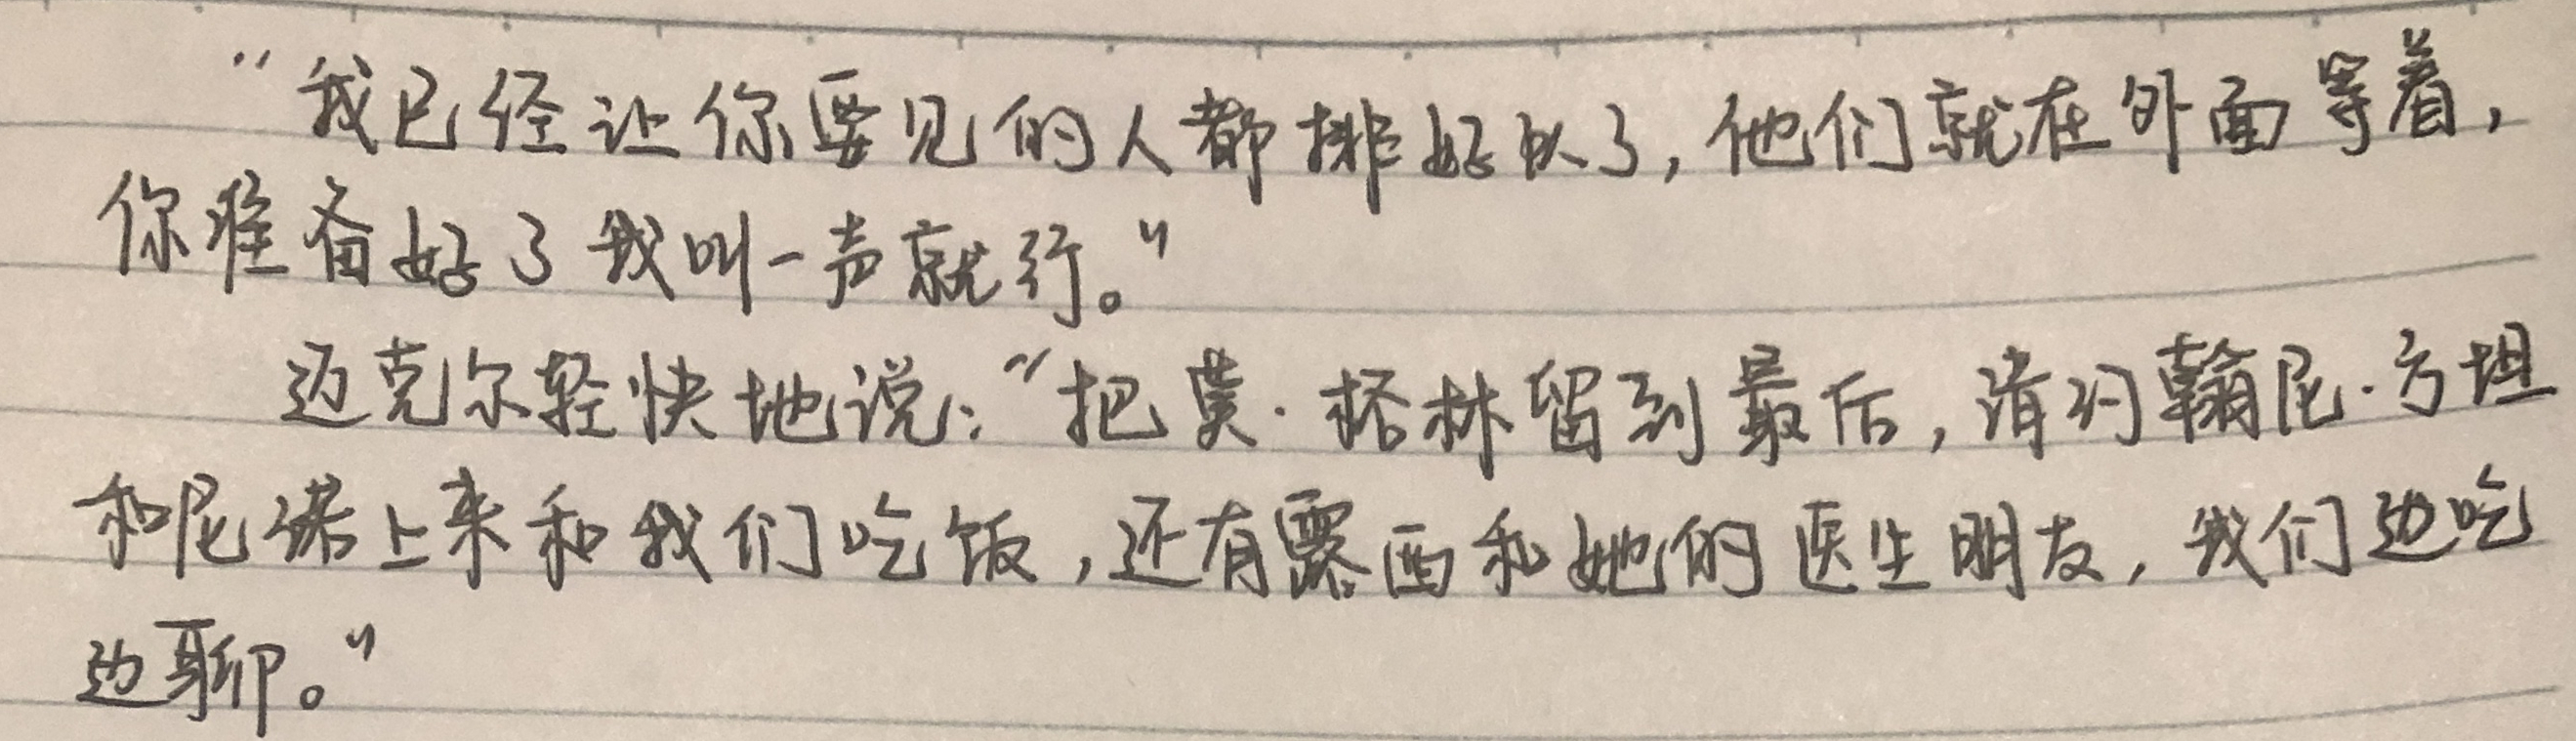 “我已经让你要见的人都排好队了，他们就在外面等着，
你准备好了我叫一声就行。”
迈克尔轻快地说：“把莫·格林留到最后，请约翰尼·方坦
和尼诺上来和我们吃饭，还有露西和她的医生朋友，我们边吃
边聊。”